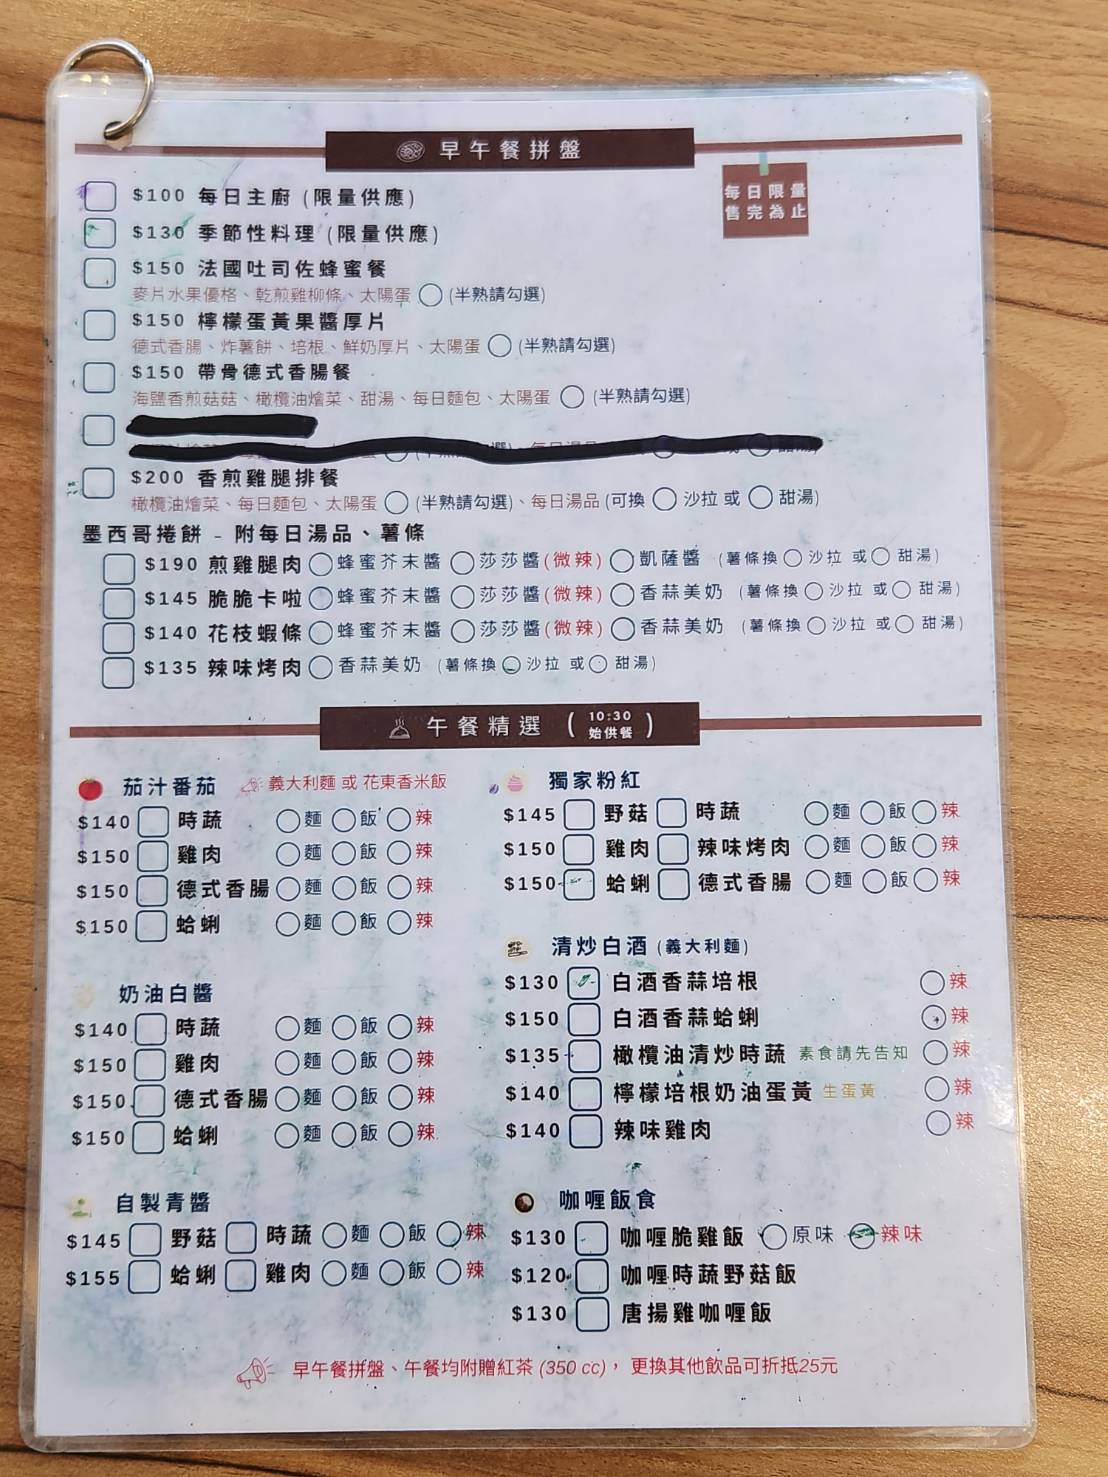 早午餐拼盤
每日限量
售完為止
$100 每日主廚 (限量供應)
$130 季節性料理 (限量供應)
$150 法國吐司佐蜂蜜餐
麥片水果優格、乾煎雞柳條、太陽蛋 (半熟請勾選)
$150 檸檬蛋黃果醬厚片
德式香腸、炸薯餅、培根、鮮奶厚片、太陽蛋 (半熟請勾選)
$150 帶骨德式香腸餐
海鹽香煎菇菇、橄欖油燴菜、甜湯、每日麵包、太陽蛋 (半熟請勾選)
$200 香煎雞腿排餐
橄欖油燴菜、每日麵包、太陽蛋 (半熟請勾選)、每日湯品 (可換 沙拉 或 甜湯)
墨西哥捲餅 - 附每日湯品、薯條
$190 煎雞腿肉 蜂蜜芥末醬 莎莎醬(微辣) 凱薩醬 (薯條換 沙拉 或 甜湯)
$145 脆脆卡啦 蜂蜜芥末醬 莎莎醬(微辣) 香蒜美奶 (薯條換 沙拉 或 甜湯)
$140 花枝蝦條 蜂蜜芥末醬 莎莎醬(微辣) 香蒜美奶 (薯條換 沙拉 或 甜湯)
$135 辣味烤肉 香蒜美奶 (薯條換 沙拉 或 甜湯)
午餐精選 (10:30 始供餐)
茄汁番茄 義大利麵 或 花東香米飯
$140 時蔬 麵 飯 辣
$150 雞肉 麵 飯 辣
$150 德式香腸 麵 飯 辣
$150 蛤蜊 麵 飯 辣
奶油白醬
$140 時蔬 麵 飯 辣
$150 雞肉 麵 飯 辣
$150 德式香腸 麵 飯 辣
$150 蛤蜊 麵 飯 辣
自製青醬
$145 野菇 時蔬 麵 飯 辣
$155 蛤蜊 雞肉 麵 飯 辣
獨家粉紅
$145 野菇 時蔬 麵 飯 辣
$150 雞肉 辣味烤肉 麵 飯 辣
$150 蛤蜊 德式香腸 麵 飯 辣
清炒白酒 (義大利麵)
$130 白酒香蒜培根 辣
$150 白酒香蒜蛤蜊 辣
$135 橄欖油清炒時蔬 素食請先告知 辣
$140 檸檬培根奶油蛋黃 生蛋黃 辣
$140 辣味雞肉 辣
咖喱飯食
$130 咖喱脆雞飯 原味 辣味
$120 咖喱時蔬野菇飯
$130 唐揚雞咖喱飯
早午餐拼盤、午餐均附贈紅茶 (350 cc)， 更換其他飲品可折抵25元